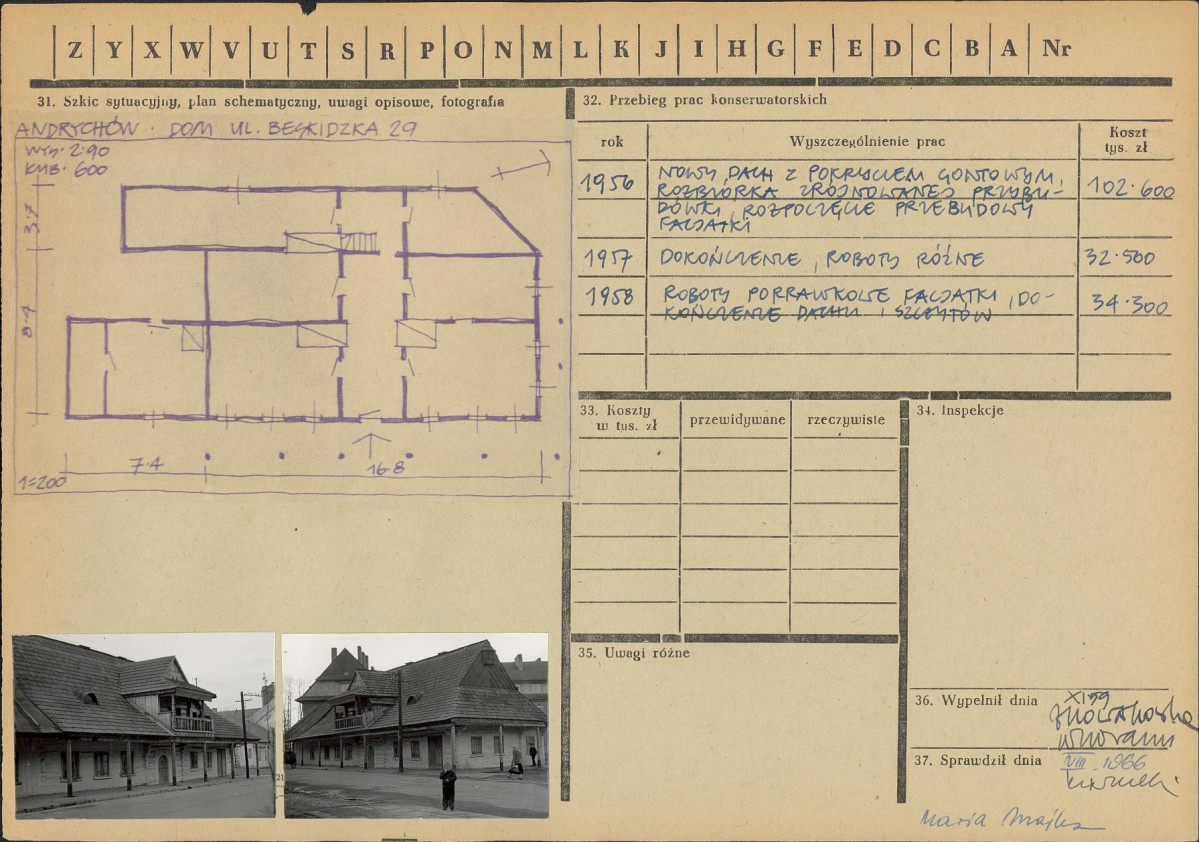 Z Y X W V U T S R P O N M L K J I H G F E D C B A Nr
31. Szkic sytuacyjny, plan schematyczny, uwagi opisowe, fotografia
ANDRYCHÓW · DOM UL. BESKIDZKA 29
WYS· 2·90
KUB· 600
3·7
8·4
7·4
16·8
1=200
21
32. Przebieg prac konserwatorskich
rok
Wyszczególnienie prac
Koszt
tys. zł
1956
NOWY DACH Z POKRYCIEM GONTOWYM,
ROZBIÓRKA ZRÓJNOWANEJ PRZYBU-
DÓWKI, ROZPOCZĘCIE PRZEBUDOWY
FACJATKI
102·600
1957
DOKOŃCZENIE, ROBOTY RÓŻNE
32·500
1958
ROBOTY POPRAWKOWE FACJATKI, DO-
KOŃCZENIE DACHU I SZCZYTÓW
34·300
33. Koszty
w tys. zł
przewidywane
rzeczywiste
34. Inspekcje
35. Uwagi różne
36. Wypełnił dnia
XI 59
37. Sprawdził dnia
VIII 1966
Maria